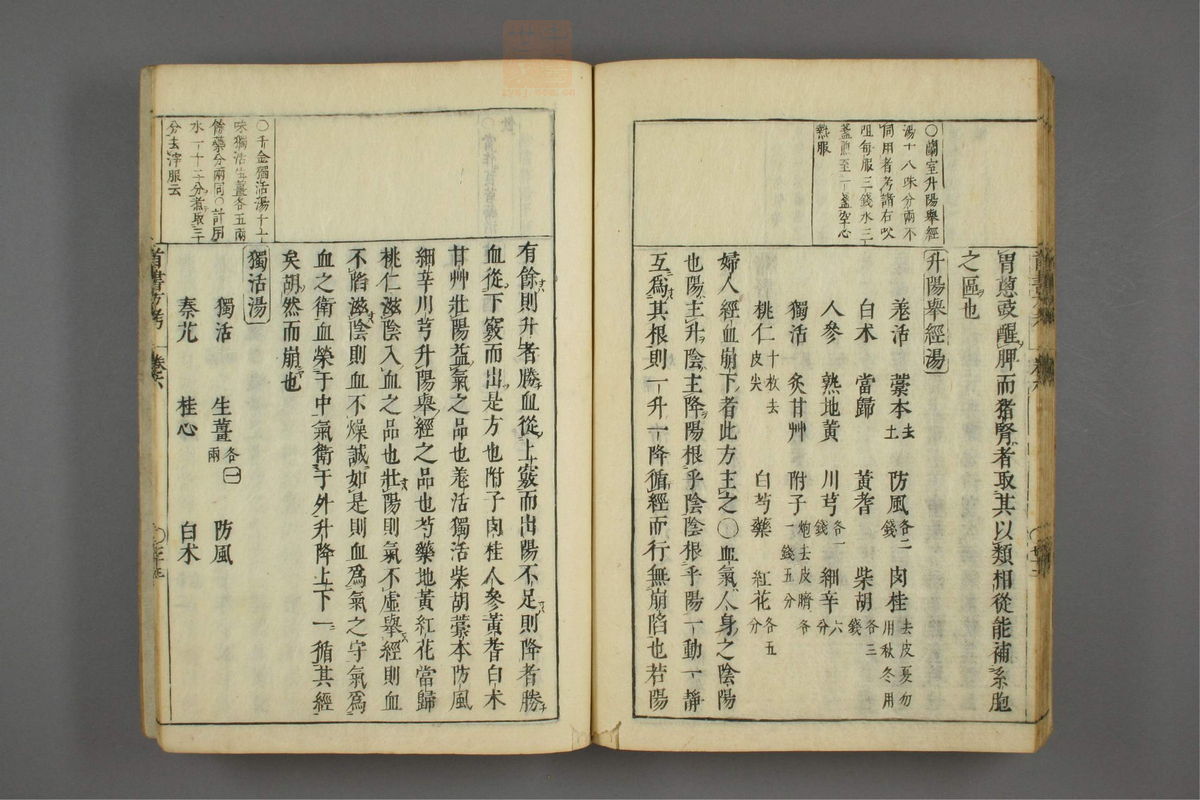 ○蘭室升陽舉經
湯十八味分兩不
同用者考諸右㕮
咀每服三錢水三
盞煎至一盞空心
熱服
胃蔥豉醒脾而猪腎者取其以類相從能補系胞
之區也
升陽舉經湯
羗活 藁本去土 防風各二錢 肉桂去皮夏勿用秋冬用
白朮 當歸 黃耆 柴胡各三錢
人參 熟地黃 川芎各一錢 細辛六分
獨活 炙甘艸 附子炮去皮臍各一錢五分
桃仁十枚去皮尖 白芍藥 紅花各五分
婦人經血崩下者此方主之○血氣人身之陰陽
也陽主升陰主降陽根乎陰陰根乎陽一動一靜
互爲其根則一升一降循經而行無崩陷也若陽
有餘則升者勝血從上竅而出陽不足則降者勝
血從下竅而出是方也附子肉桂人參黃耆白朮
甘艸壯陽益氣之品也羗活獨活柴胡藁本防風
細辛川芎升陽舉經之品也芍藥地黃紅花當歸
桃仁滋陰入血之品也壯陽則氣不虛舉經則血
不陷滋陰則血不燥誠如是則血爲氣之守氣爲
血之衛血榮于中氣衛于外升降上下一循其經
矣胡然而崩也
○千金獨活湯十七
味獨活生薑各五兩
餘藥分兩同○計用
水一十二分煮取三十
分去滓服云
獨活湯
獨活 生薑各一兩 防風
秦艽 桂心 白朮
首書方考 卷六